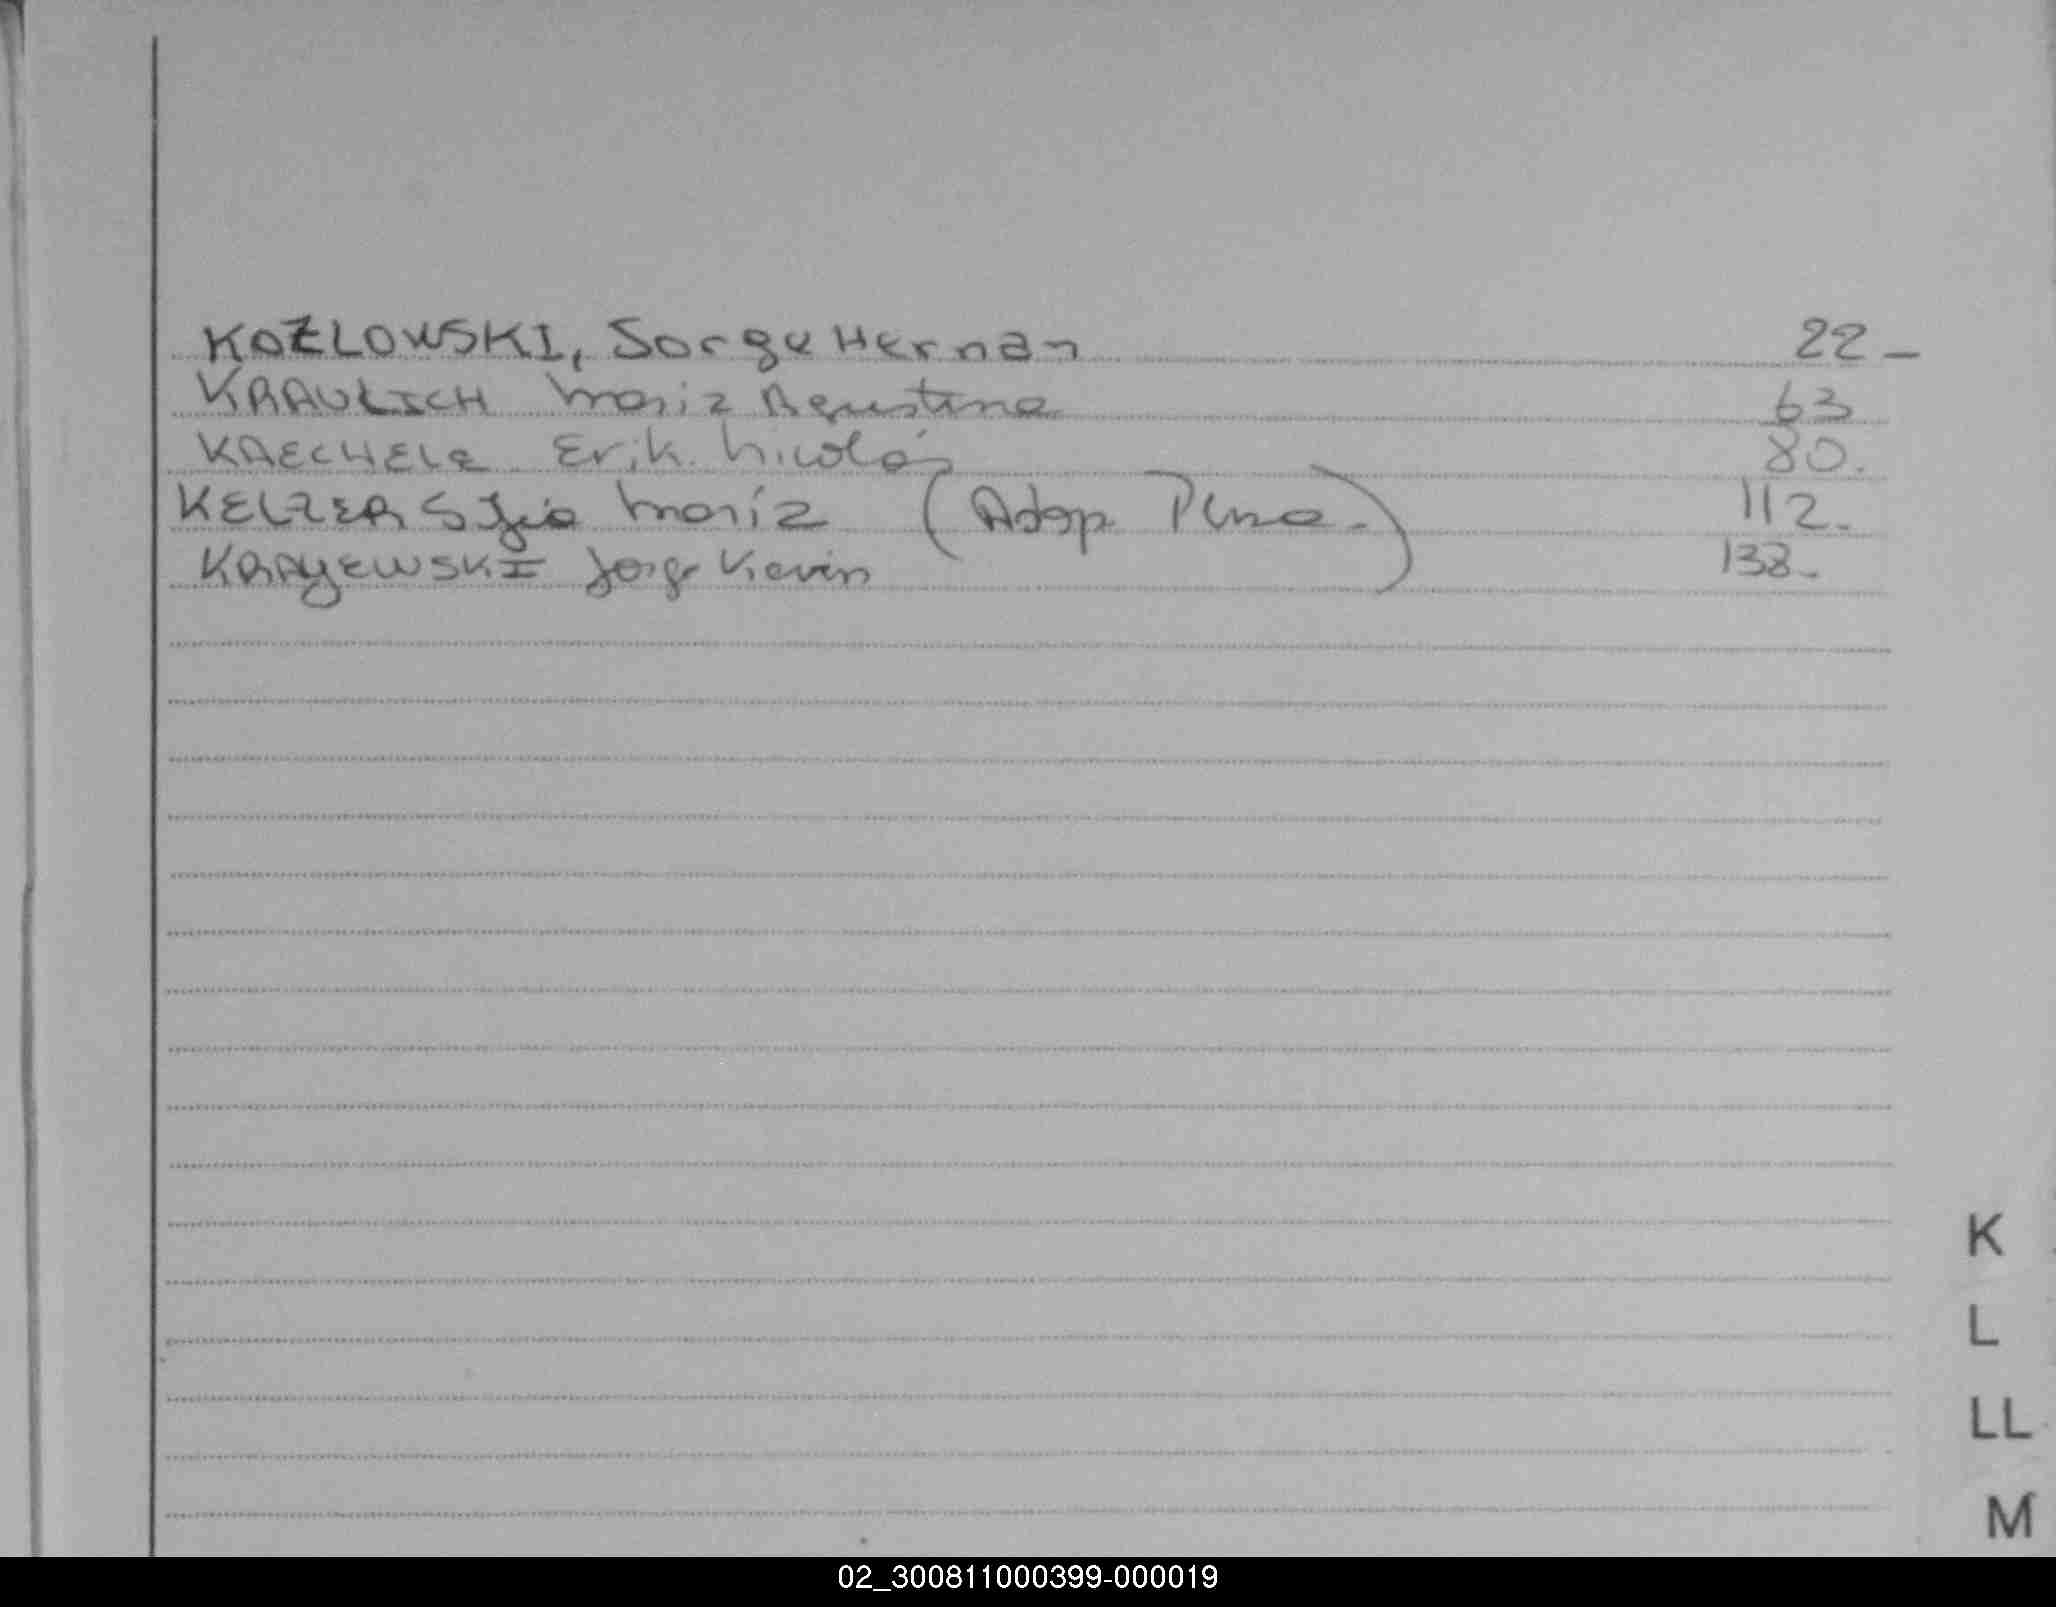 KOZLOWSKI, Jorge Hernan 22-
KRAULICH Maria Agustina 63
KAECHELE Erik Nicolás 80.
KELZER Sofia María (Adop Plena.) 112.
KRAYEWSKI Jorge Kevin 138.
K
L
LL
M
02_300811000399-000019